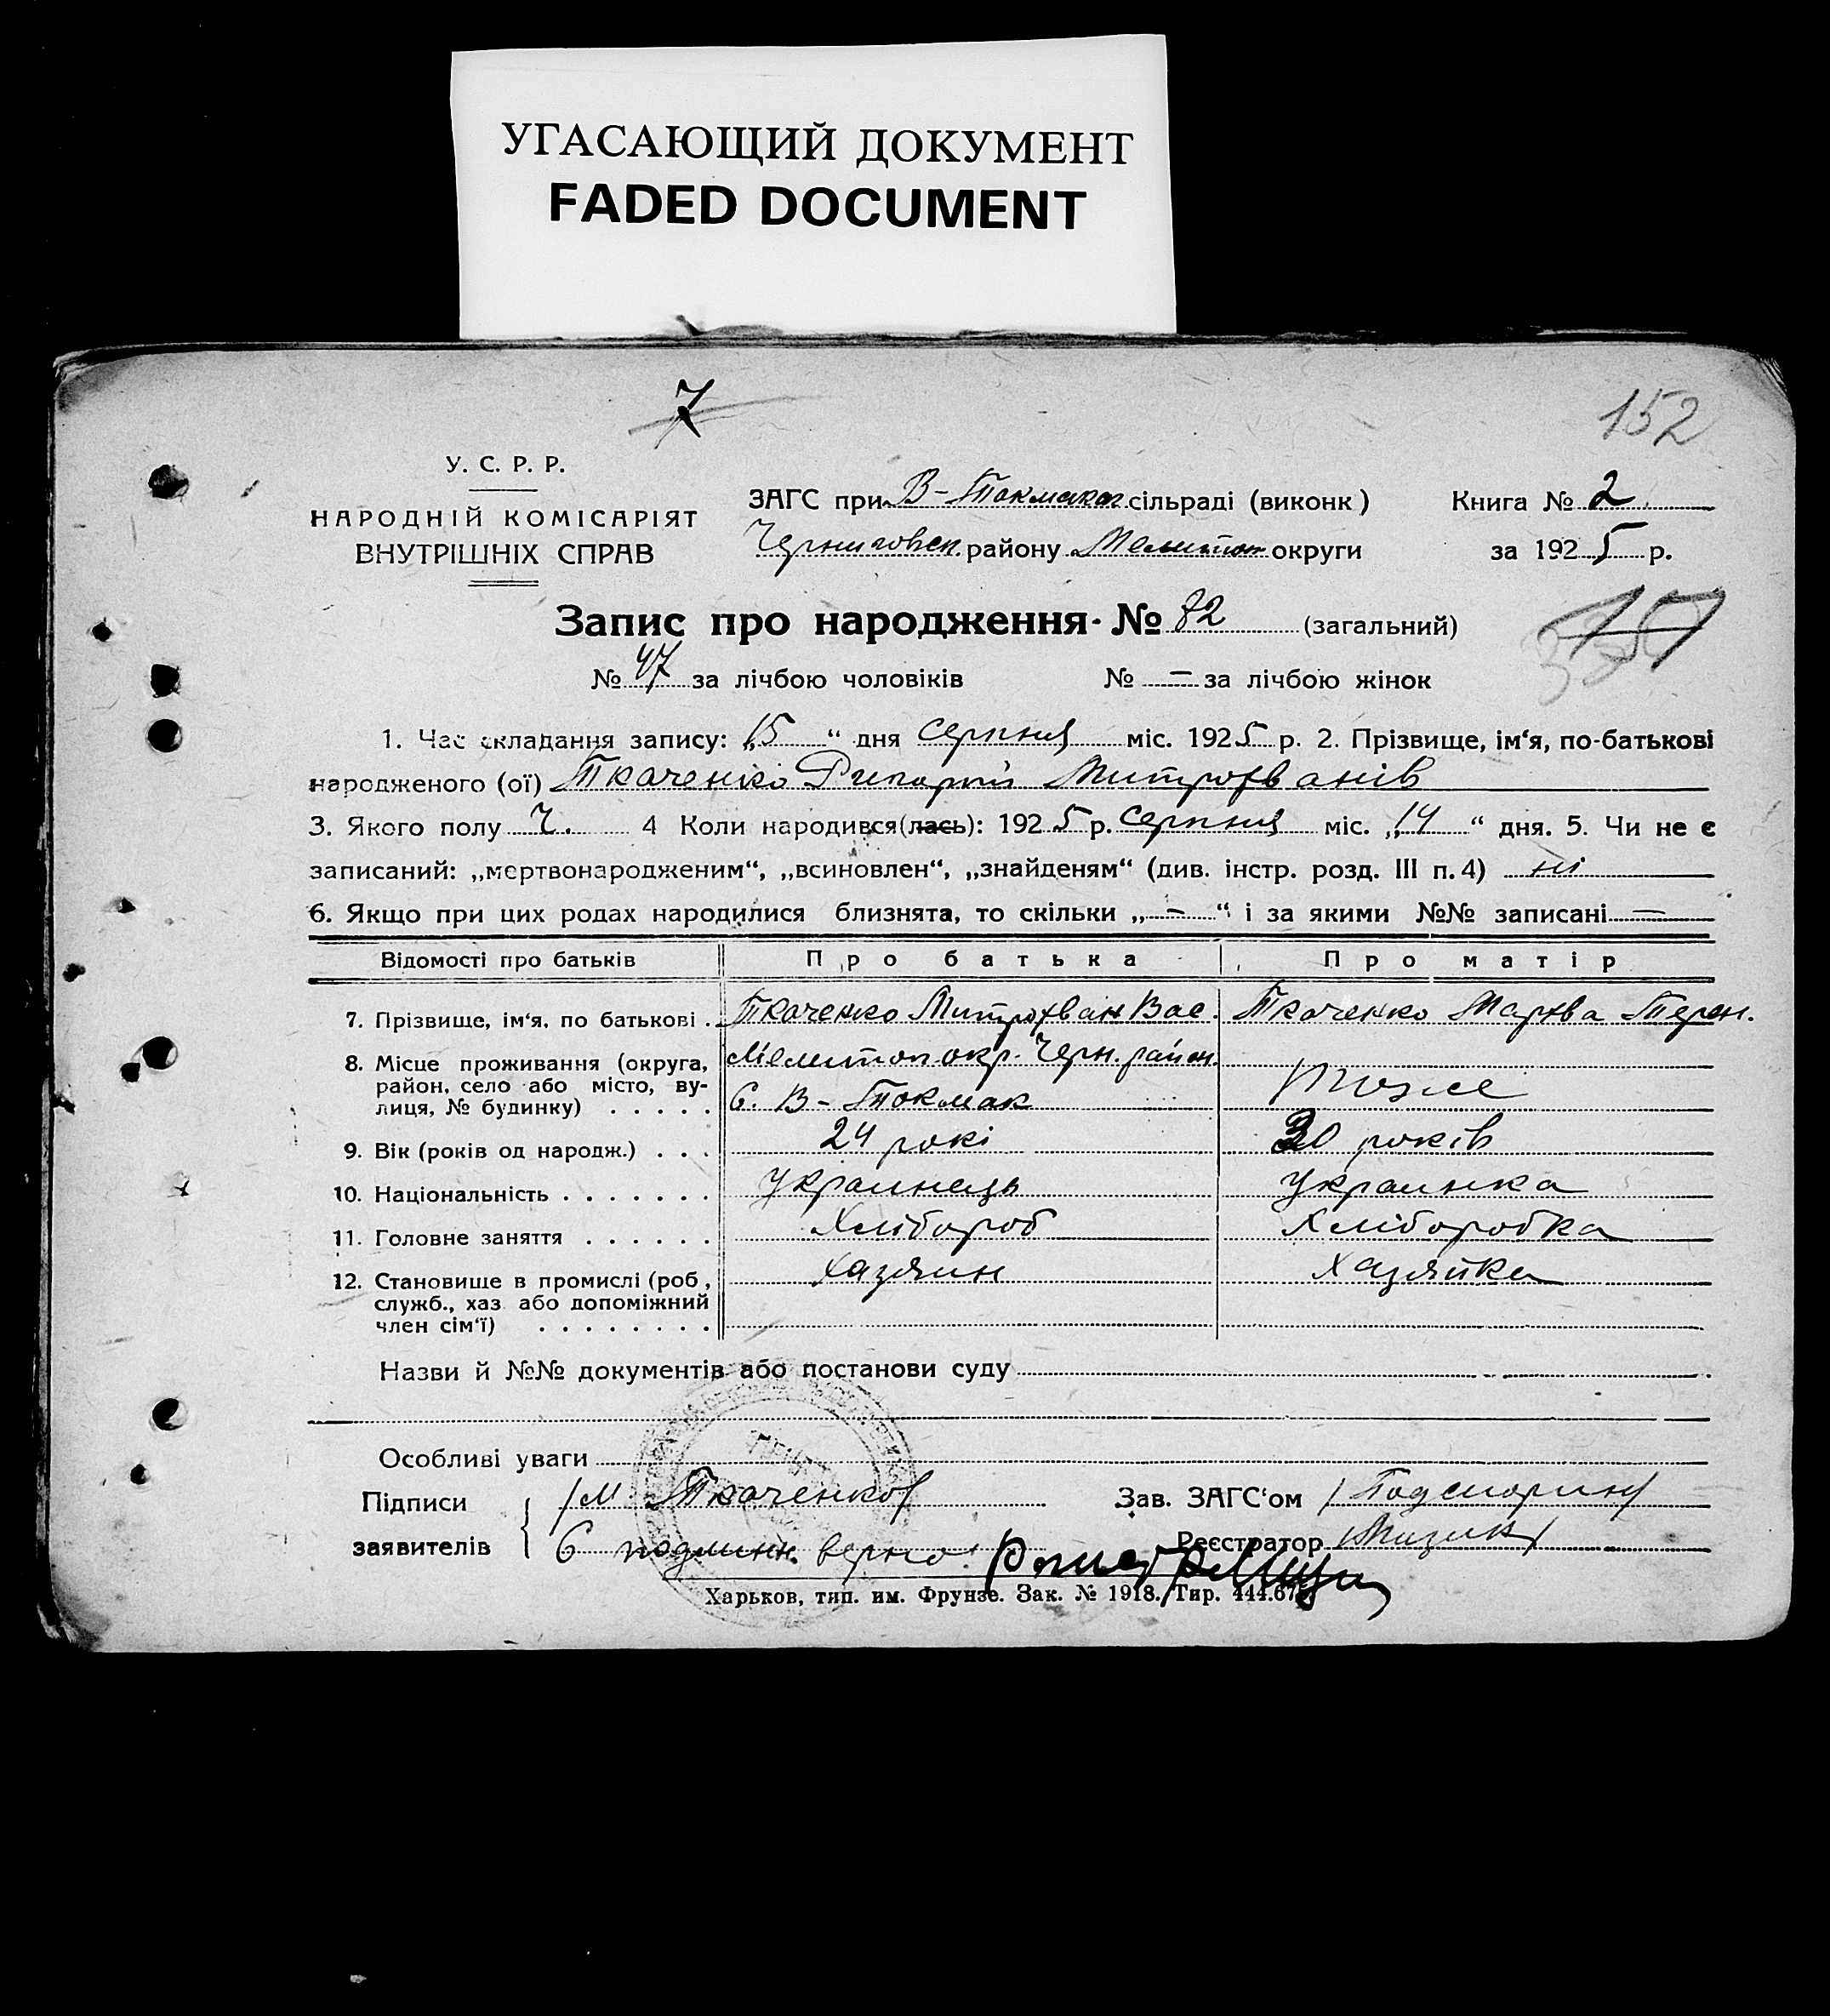 УГАСАЮЩИЙ ДОКУМЕНТ
FADED DOCUMENT
7
152
У. С. Р. Р.
НАРОДНІЙ КОМІСАРІЯТ
ВНУТРІШНІХ СПРАВ
ЗАГС при В-Токмакаг сільраді (виконк)
Черниговск. району Мелитоп округи
Книга № 2
за 1925 р.
Запис про народження № 82 (загальний)
№ 47 за лічбою чоловіків № — за лічбою жінок
1. Час складання запису: „15“ дня серпня міс. 1925 р. 2. Прізвище, ім‘я, по-батькові
народженого (ої) Ткаченко Григорій Митрофанів
3. Якого полу Ч. 4 Коли народився(лась): 1925 р. серпня міс. „14“ дня. 5. Чи не є
записаний: „мертвонародженим“, „всиновлен“, „знайденям“ (див. інстр. розд. III п. 4) ні
6. Якщо при цих родах народилися близнята, то скільки „—“ і за якими №№ записані —
Відомості про батьків Про батька Про матір
7. Прізвище, ім‘я, по батькові . Ткаченко Митрофан Вас. Ткаченко Марфа Терен.
8. Місце проживання (округа, Мелитоп. окр. Черн. район.
район, село або місто, ву- С. В-Токмак тоже
лиця, № будинку) . . . . .
9. Вік (років од народж.) . . . 24 рокі 30 років
10. Національність . . . . . . . Украинець Украинка
11. Головне заняття . . . . . . Хлібороб Хліборобка
12. Становище в промислі (роб., Хазяин Хазяйка
служб., хаз. або допоміжний
член сім‘ї) . . . . . . . .
Назви й №№ документів або постанови суду
Особливі уваги
Підписи /М. Ткаченко/ Зав. ЗАГС‘ом
заявителів С подлинн. верно: Реєстратор /Мизик/
Харьков, тип. им. Фрунзе. Зак. № 1918. Тир. 444.67